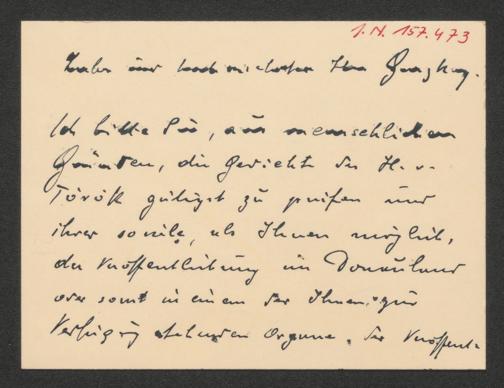 I.N. 157.473
Lieber und hochverehrter Herr
Ich bitte Sie, aus menschlichen
Gründen, die Gedichte des H. v.
Török gütigst zu prüfen und
ihrer soviele, als Ihnen möglich,
der Veröffentlichung im Donauland
oder sonst in einem der Ihnen zur
Verfügung stehenden Organe, der Veröffent-